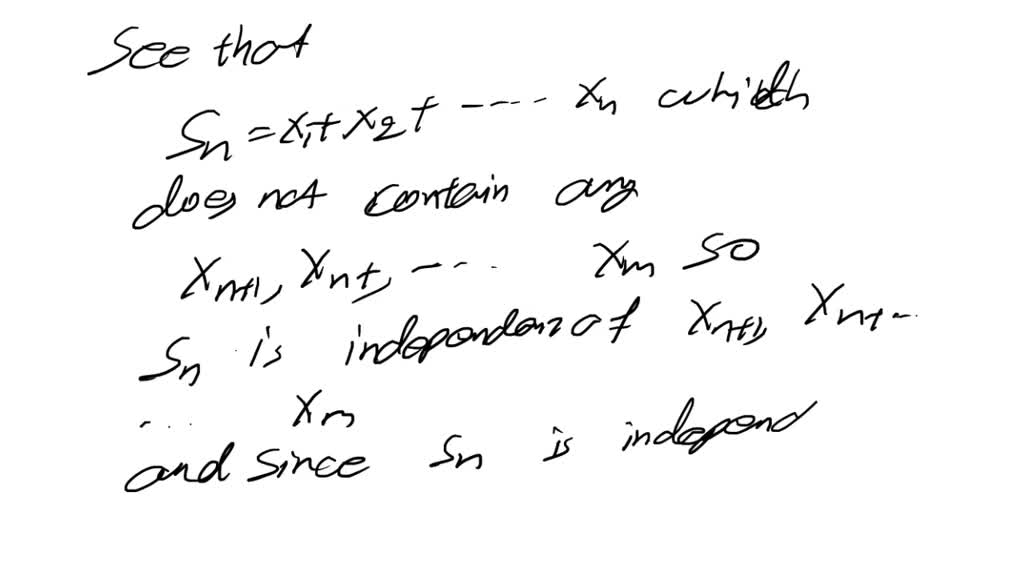 See that
Sn = x1 + x2 + ---- xn which
does not contain any
xn+1, xn+, --- xm so
Sn is independen of xn+1, xn+--
... xm
and since Sn is independ